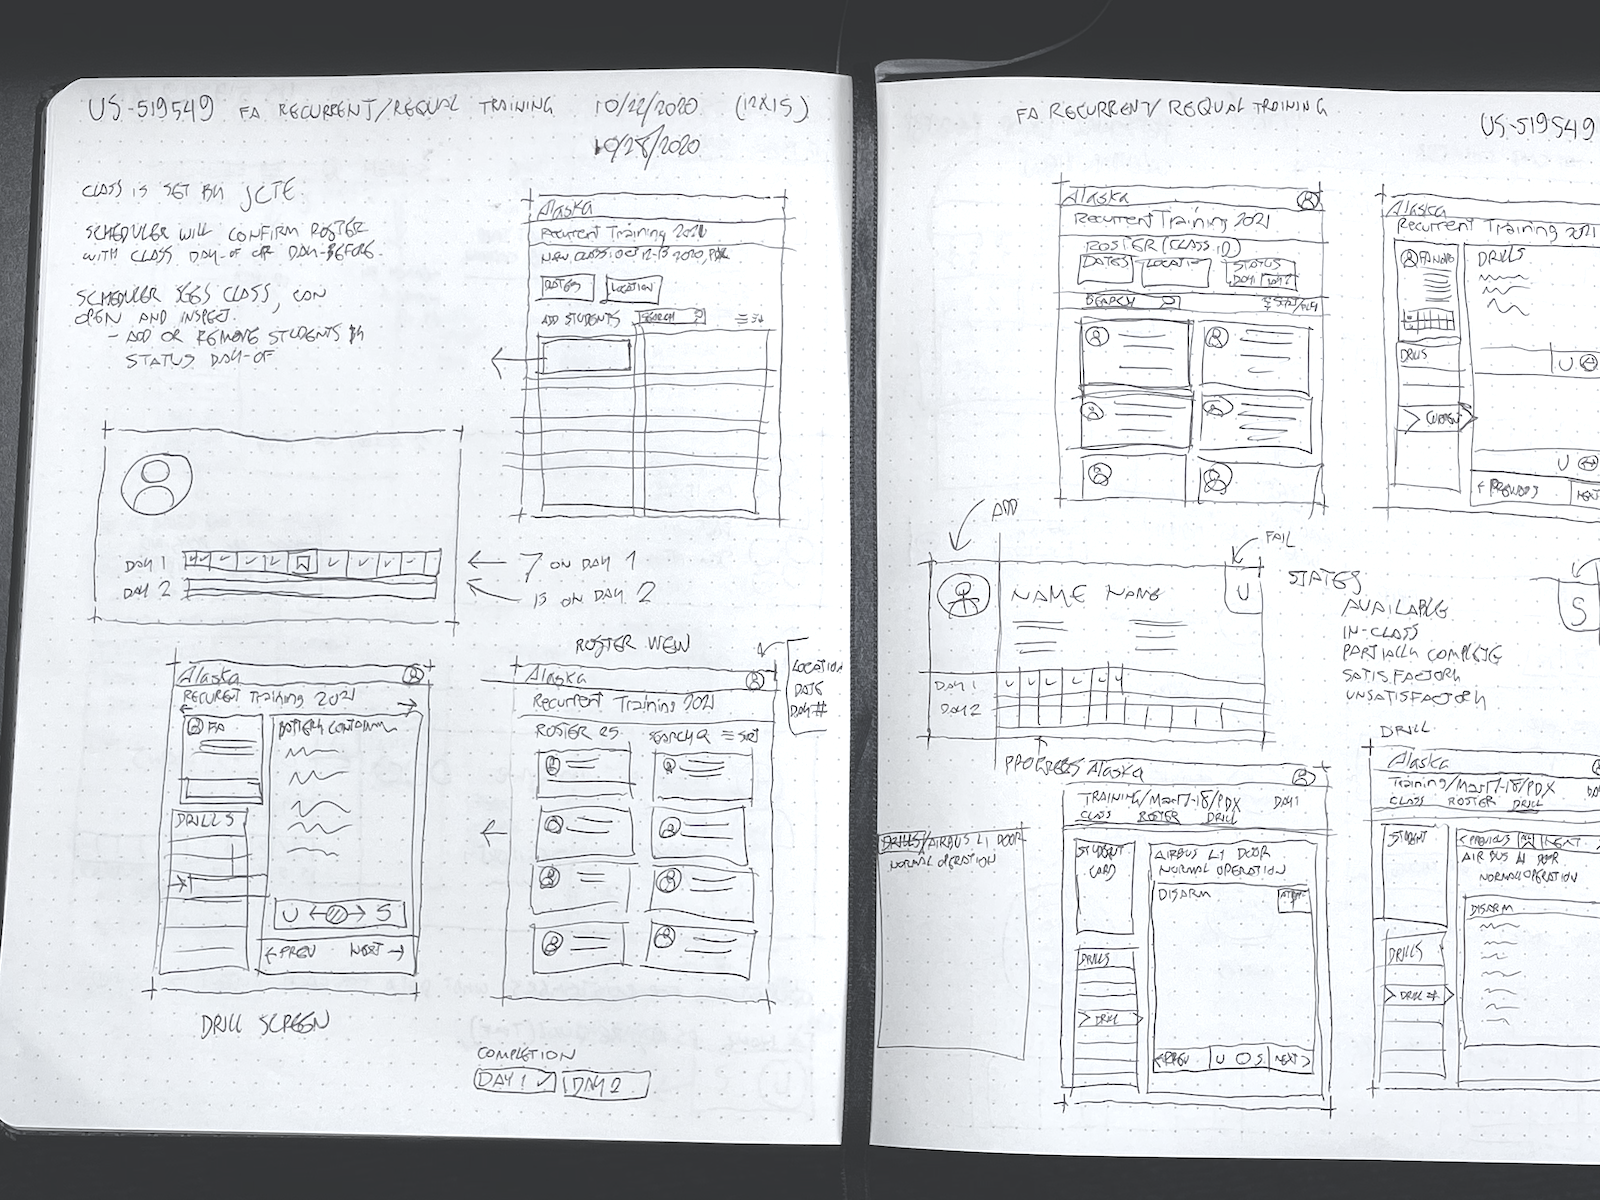 US-519549 FA RECURRENT/REQUAL TRAINING 10/22/2020 (12X15)
10/28/2020
CLASS IS SET BY JCTE.
SCHEDULER WILL CONFIRM ROSTER
WITH CLASS DAY-OF OR DAY-BEFORE.
SCHEDULER SEES CLASS, CAN
OPEN AND INSPECT.
- ADD OR REMOVE STUDENTS BY
STATUS DAY-OF
Alaska
Recurrent Training 2021
NEW CLASS: OCT 12-13 2020, PDX
DATES LOCATION
ADD STUDENTS SEARCH
DAY 1
DAY 2
7 ON DAY 1
15 ON DAY 2
Alaska
RECURENT Training 2021
FA
DRILLS
U S
← PREV NEXT →
DRILL SCREEN
ROSTER VIEW
Alaska
Recurrent Training 2021
ROSTER 25 SEARCH SORT
LOCATION
DATE
DAY #
COMPLETION
DAY 1 ✓ DAY 2
FA RECURRENT/REQUAL TRAINING
US-519549
Alaska
Recurrent Training 2021
ROSTER (CLASS ID)
DATES LOCATION STATUS
DAY1 DAY2
SEARCH
Alaska
Recurrent Training 2021
DRILLS
DRILLS
CURRENT
U
U
< PREVIOUS NEXT
ADD
FAIL
NAME NAME
U
DAY 1
DAY 2
PROGRESS
STATES
AVAILABLE
IN-CLASS
PARTIALLY COMPLETE
SATISFACTORY
UNSATISFACTORY
S
DRILLS/AIRBUS L1 DOOR
NORMAL OPERATION
Alaska
TRAINING/Mar 17-18/PDX DAY1
CLASS ROSTER DRILL
STUDENT
CARD
AIRBUS L1 DOOR
NORMAL OPERATION
DISARM
DRILLS
DRILL
<PREV U O S NEXT>
DRILL
Alaska
Training/Mar 17-18/PDX
CLASS ROSTER DRILL
STUDENT
<PREVIOUS NEXT
AIR BUS L1 DOOR
NORMAL OPERATION
DISARM
DRILLS
DRILL #